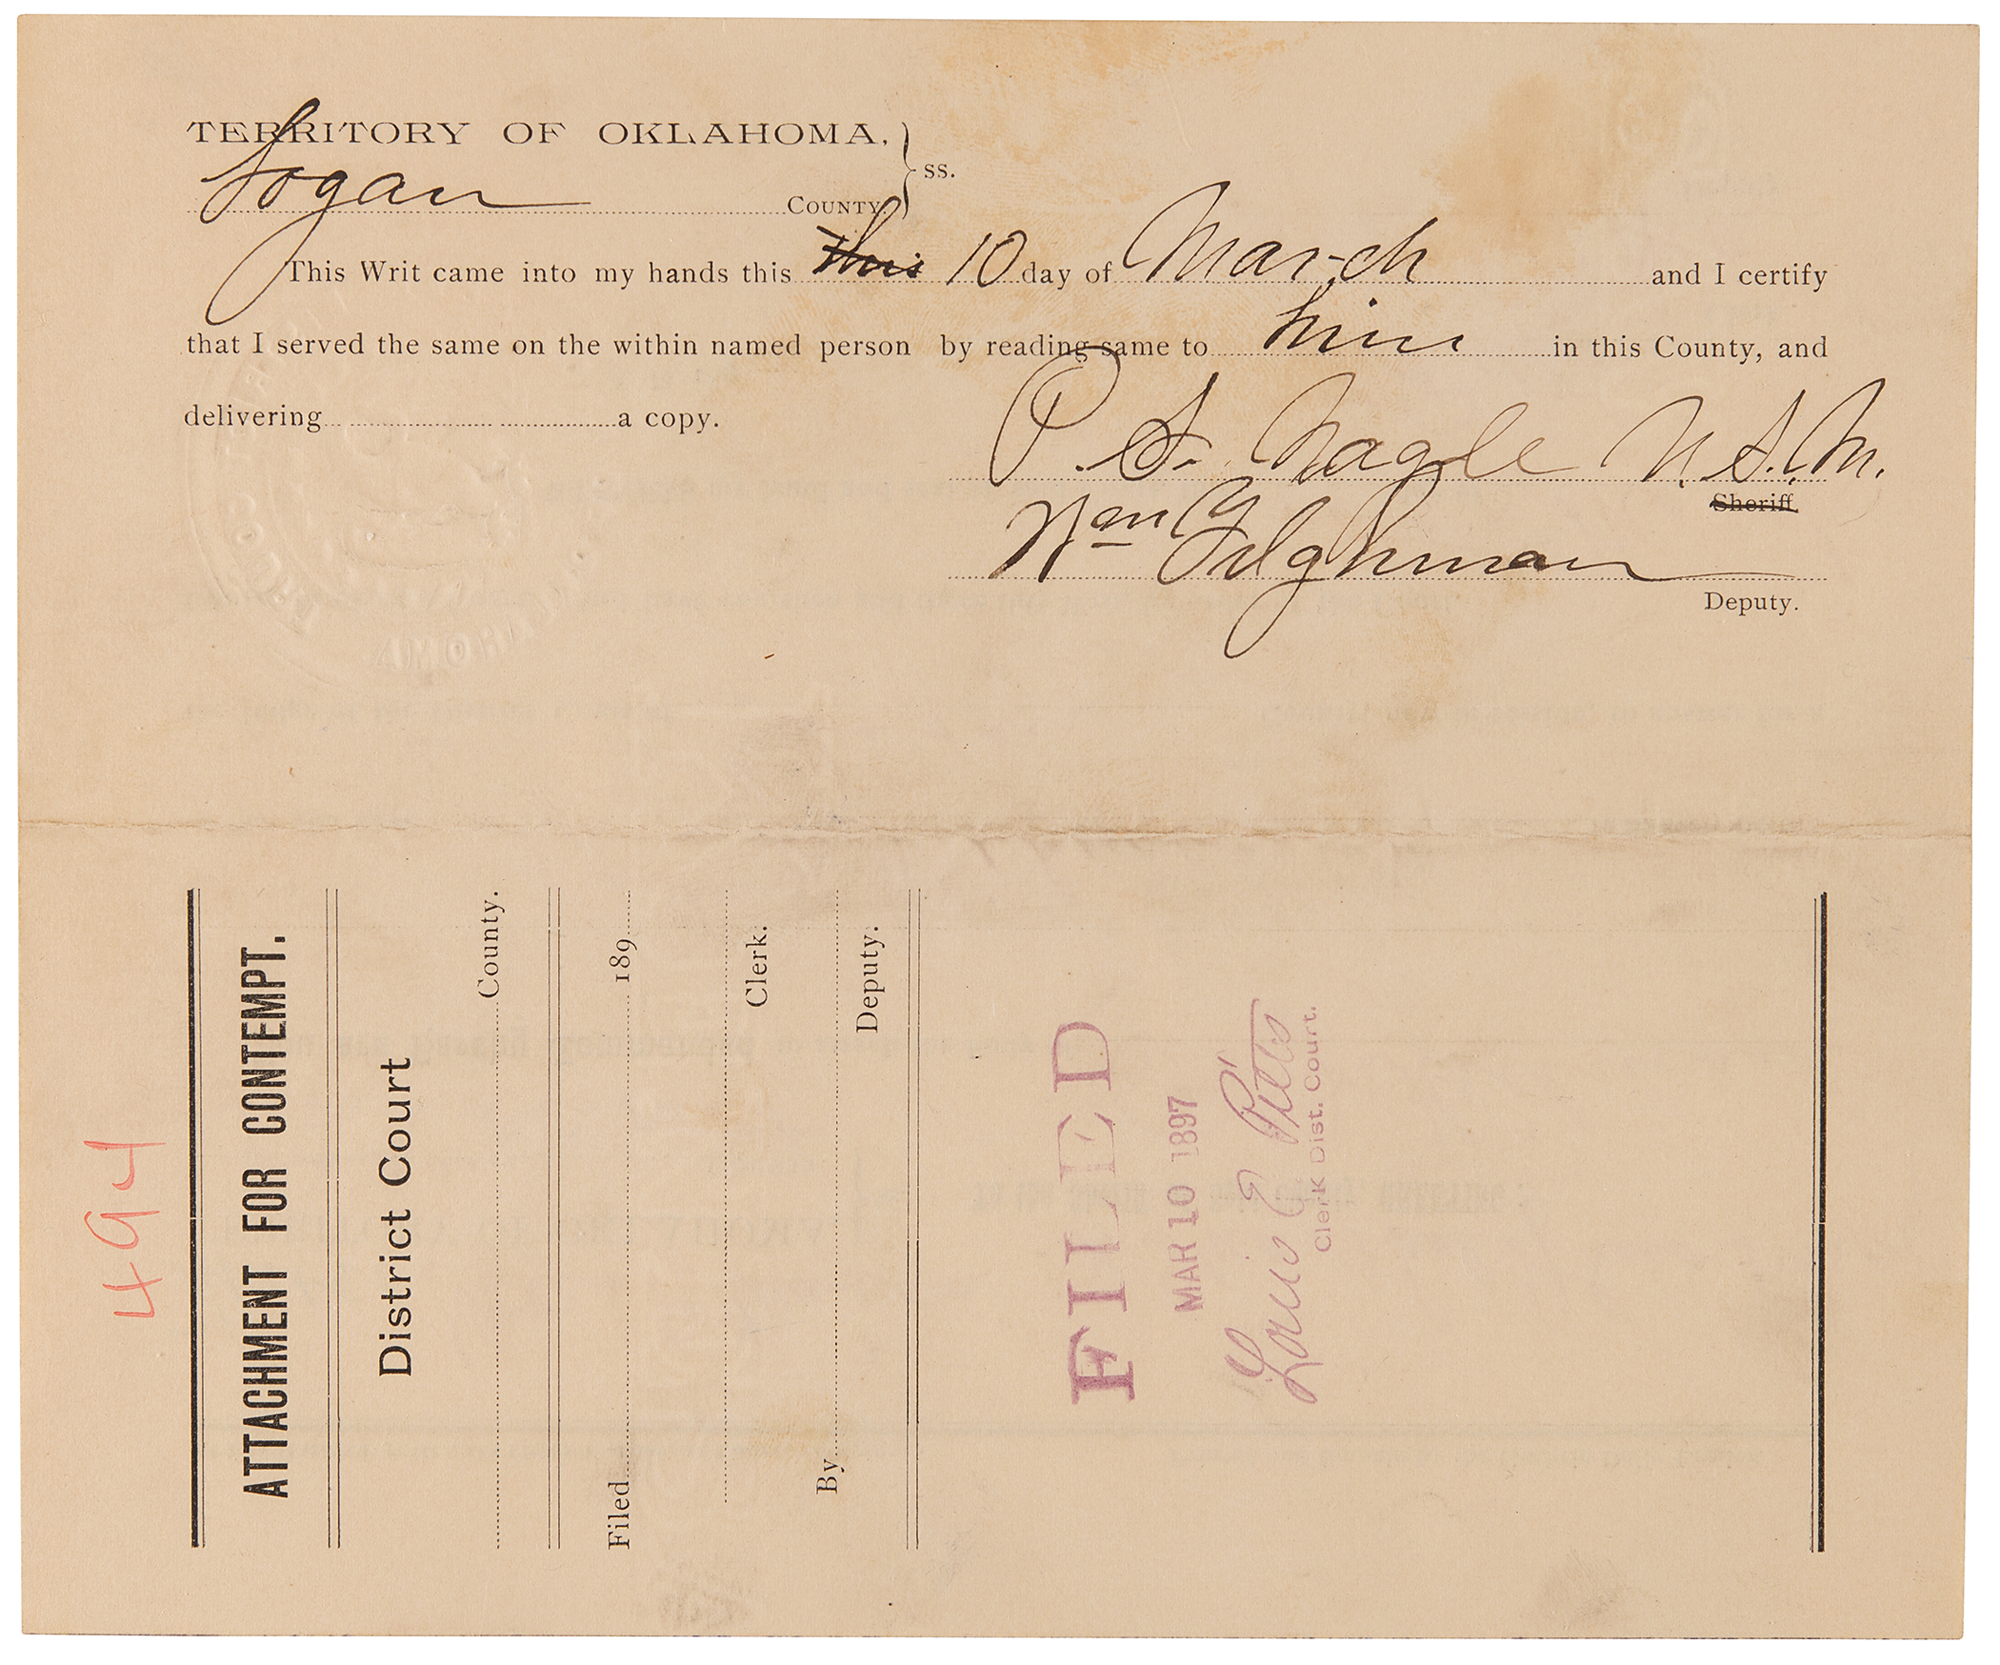 TERRITORY OF OKLAHOMA,
Logan COUNTY. } ss.
This Writ came into my hands this this 10 day of March and I certify
that I served the same on the within named person by reading same to him in this County, and
delivering a copy.
P. S. Nagle U.S.M.
Sheriff.
Wm Tilghman
Deputy.
494
ATTACHMENT FOR CONTEMPT.
District Court
County.
Filed 189
Clerk.
By
Deputy.
FILED
MAR 10 1897
Louis E Pitts
Clerk Dist. Court.